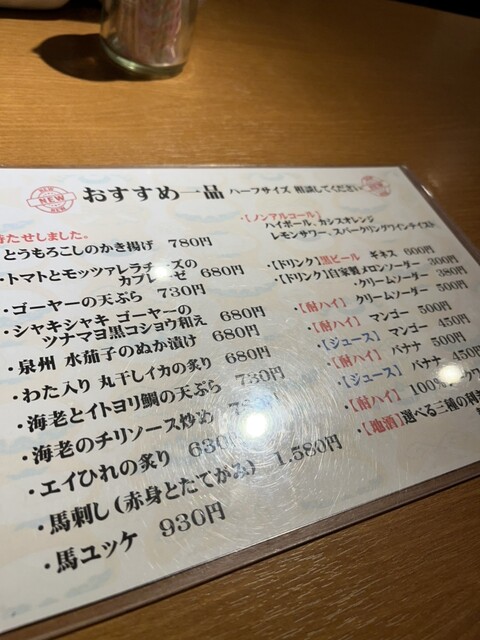 NEW
おすすめ一品 ハーフサイズ 相談してください
NEW
待たせしました。
とうもろこしのかき揚げ 780円
・トマトとモッツァレラチーズの
カプレーゼ 680円
・ゴーヤーの天ぷら 730円
・シャキシャキ ゴーヤーの
ツナマヨ黒コショウ和え 680円
・泉州 水茄子のぬか漬け 680円
・わた入り 丸干しイカの炙り 680円
・海老とイトヨリ鯛の天ぷら 730円
・海老のチリソース炒め
・エイひれの炙り 630
・馬刺し(赤身とたてがみ) 1.580円
・馬ユッケ 930円
・【ノンアルコール】
ハイボール、カシスオレンジ
レモンサワー、スパークリングワインテイスト
・【ドリンク】黒ビール ギネス 600円
・【ドリンク】自家製メロンソーダー 300円
・クリームソーダー 380円
・【酎ハイ】 クリームソーダー 500円
・【酎ハイ】 マンゴー 500円
・【ジュース】 マンゴー 450円
・【酎ハイ】 バナナ 500円
・【ジュース】 バナナ 450円
・【酎ハイ】 100%
・【地酒】選べる三種の利き